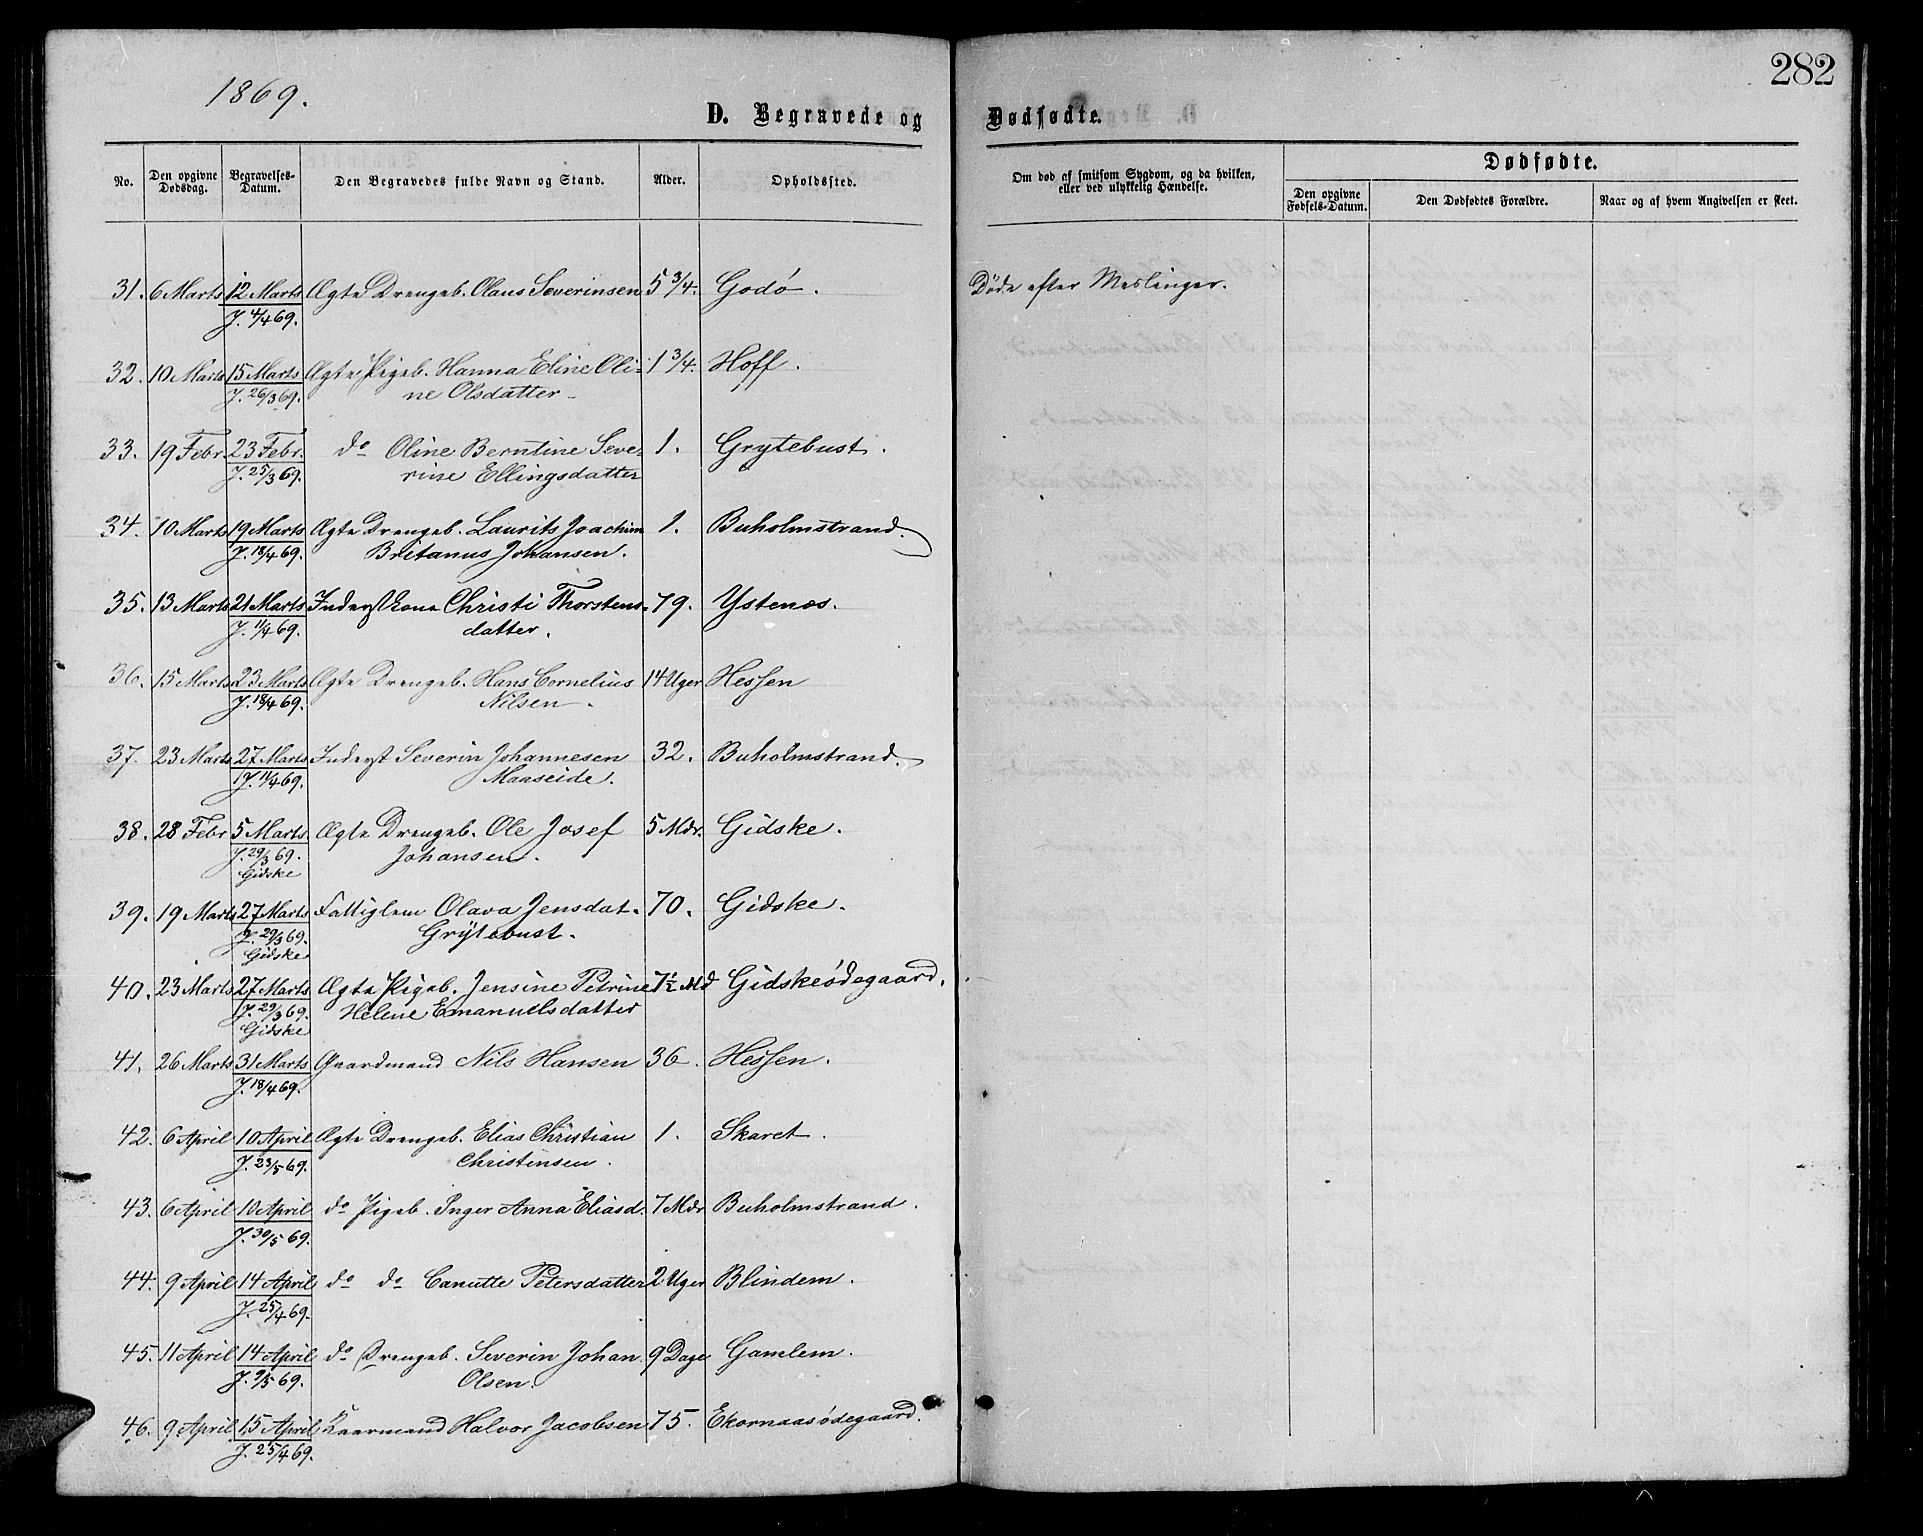 1869.
282
D. Begravede og Dødfødte.
No.
Den opgivne Dødsdag.
Begravelses-Datum.
Den Begravedes fulde Navn og Stand.
Alder.
Opholdssted.
Om død af smitsom Sygdom, og da hvilken, eller ved ulykkelig Hændelse.
Dødfødte.
Den opgivne Fødsels-Datum.
Den Dødfødtes Forældre.
Naar og af hvem Angivelsen er skeet.
31. 6 Marts 12 Marts Ægte Drengeb. Olaus Severinsen 5 3/4. Godö. Döde efter Meslinger.
J. 4/4 69.
32. 10 Marts 15 Marts Ægte Pigeb. Hanna Eline Oli- 1 3/4. Hoff.
J. 26/3 69. ne Olsdatter
33. 19 Febr. 23 Febr. do Oline Berntine Seve- 1. Grytebust.
J. 25/3 69. rine Ellingsdatter
34. 10 Marts 19 Marts Ægte Drengeb. Laurits Joachim 1. Buholmstrand.
J. 18/4 69. Britanus Johansen.
35. 13 Marts 21 Marts Inderstkone Christi Thorstens- 79. Ystenæs.
J. 11/4 69. datter.
36. 15 Marts 23 Marts Ægte Drengeb. Hans Cornelius 14 Uger Hessen
J. 18/4 69. Nilsen.
37. 23 Marts 27 Marts Inderst Severin Johannesen 32. Buholmstrand.
J. 11/4 69. Maaseide.
38. 28 Febr 5 Marts Ægte Drengeb. Ole Josef 5 Mdr. Gidske.
J. 29/3 69. Johansen.
Gidske
39. 19 Marts 27 Marts Fattiglem Olava Jensdat. 70. Gidske.
J. 29/3 69. Grytebust.
Gidske
40. 23 Marts 27 Marts Ægte Pigeb. Jensine Petrine 7 1/2 Md Gidskeödegaard.
J. 29/3 69. Helene Emanuelsdatter
Gidske
41. 26 Marts 31 Marts Gaardmand Nils Hansen 36. Hessen.
J. 18/4 69.
42. 6 April 10 April Ægte Drengeb. Elias Christian 1. Skaret.
J. 23/5 69. Christensen.
43. 6 April 10 April do Pigeb. Inger Anna Eliasd. 7 Mdr Buholmstrand.
J. 30/5 69.
44. 9 April 14 April do do Canutte Petersdatter 2 Uger Blindem.
J. 25/4 69.
45. 11 April 14 April do Drengeb. Severin Johan 9 Dage Gamlem.
J. 9/5 69. Olsen.
46. 9 April 15 April Kaarmand Halvor Jacobsen 75. Ekornaasödegaard.
J. 25/4 69.